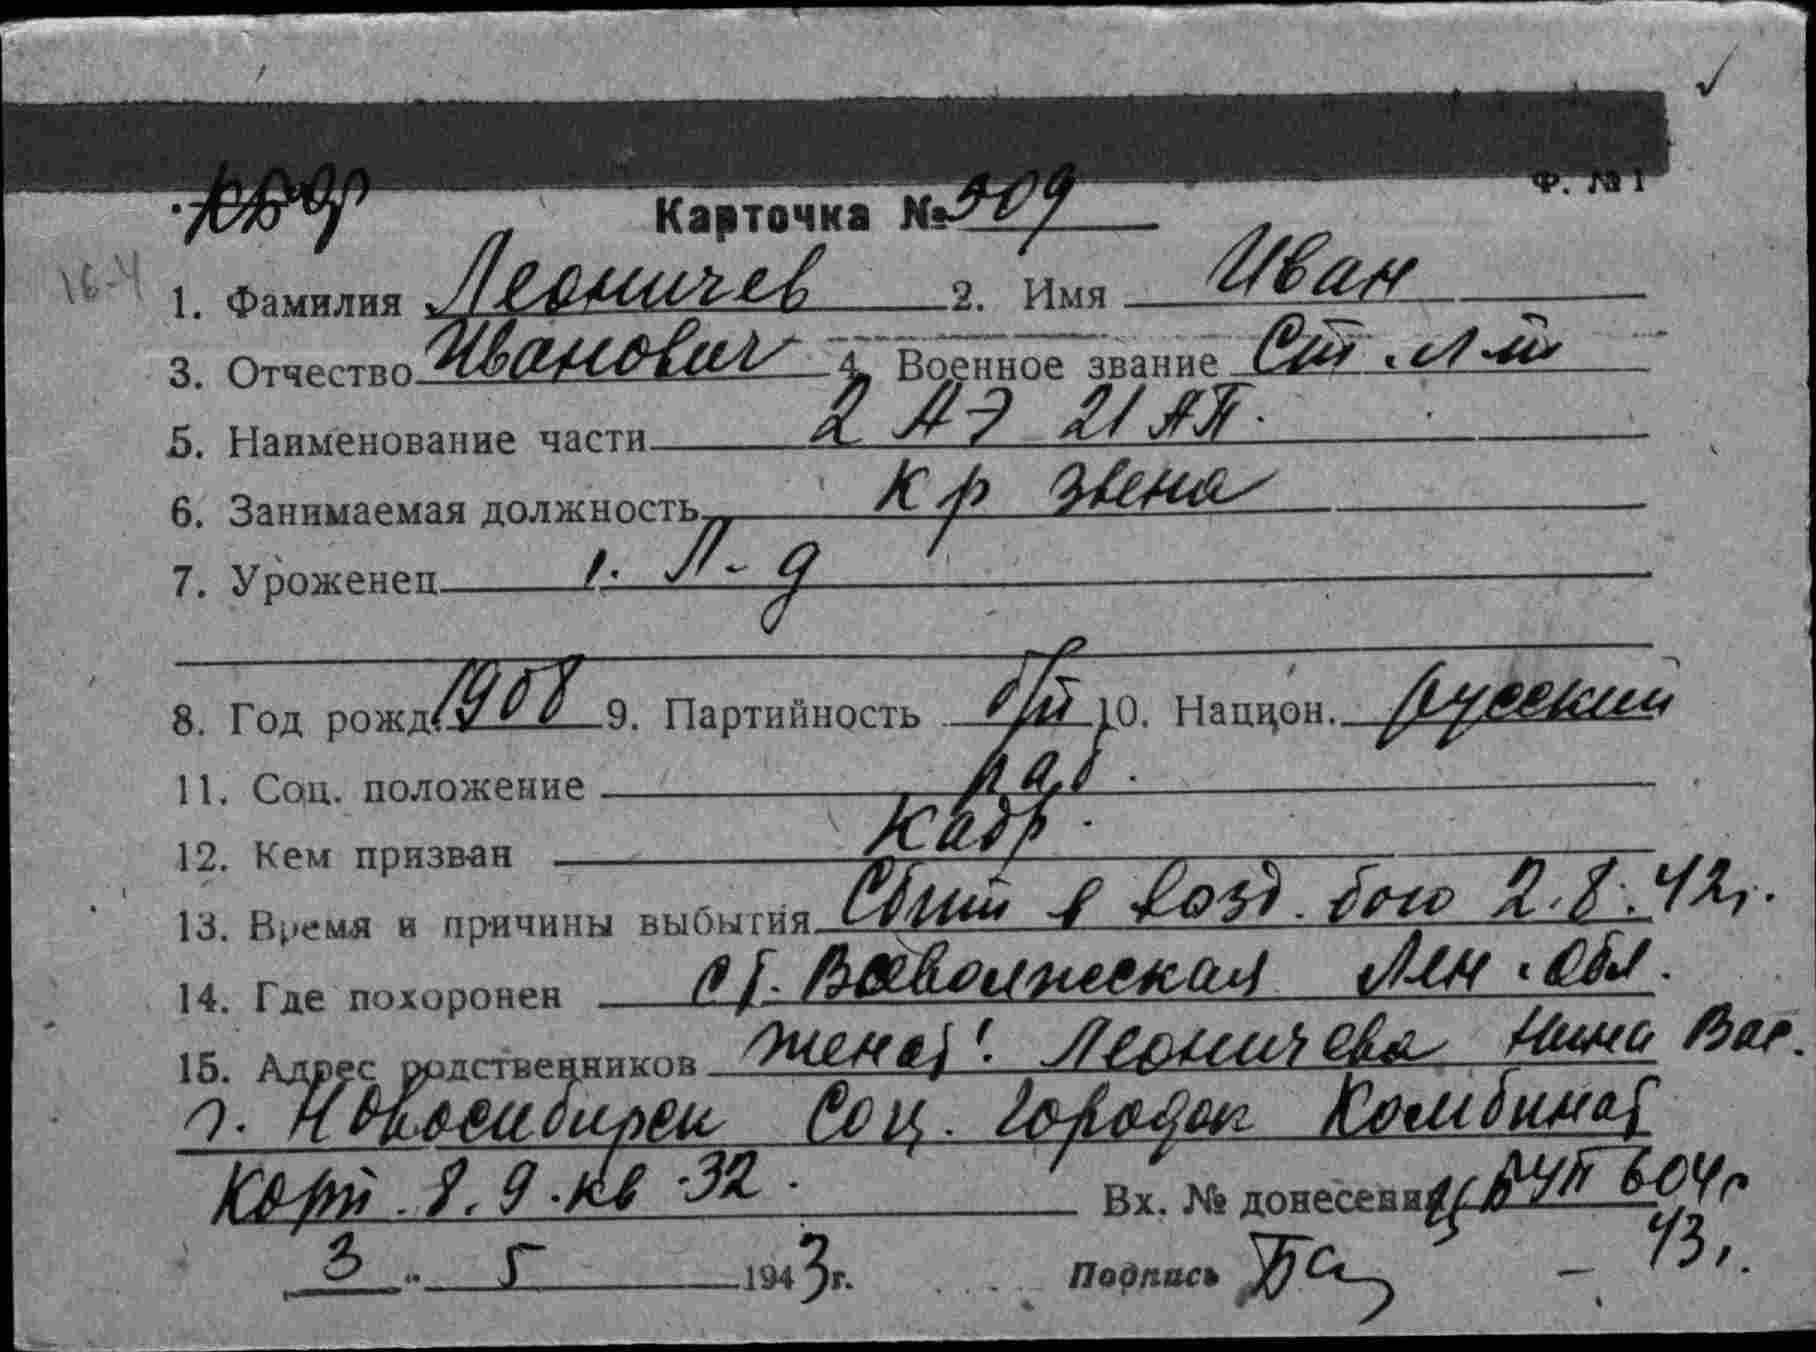 ✓
КБФ
Ф. № 1
Карточка № 309
16-4
1. Фамилия Леоничев 2. Имя Иван
3. Отчество Иванович 4. Военное звание Ст. л-т
5. Наименование части 2 АЭ 21 АП.
6. Занимаемая должность к-р звена
7. Уроженец г. Л-д
8. Год рожд. 1908 9. Партийность б/п 10. Национ. русский
11. Соц. положение раб.
12. Кем призван Кадр.
13. Время и причины выбытия Сбит в возд. бою 2.8.42г.
14. Где похоронен ст. Всеволжская Лен. обл.
15. Адрес родственников женат: Леоничева Нина Вас.
г. Новосибирск Соц. городок Комбинат
Корп. 8. 9. кв. 32.
Вх. № донесения ЦБУП 604с
3 " 5 1943г. Подпись - 43г.